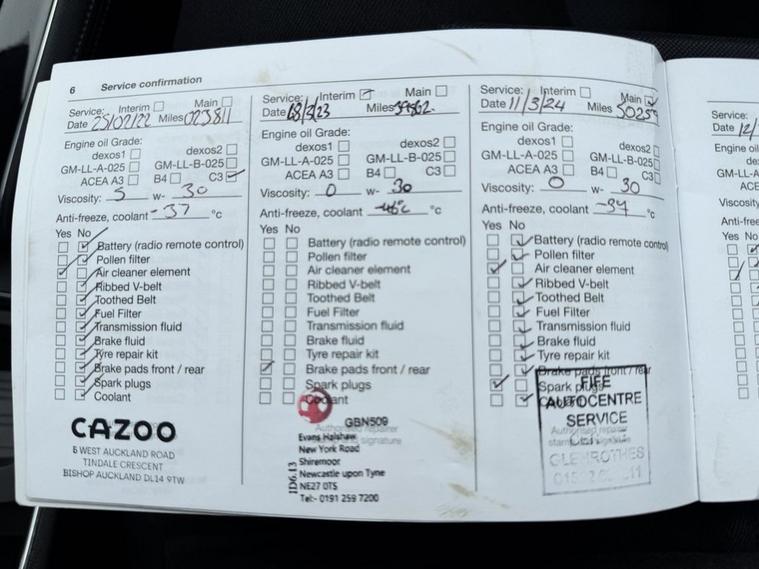 6 Service confirmation
Service: Interim Main
Date 25/02/22 Miles 023811
Engine oil Grade:
dexos1 dexos2
GM-LL-A-025 GM-LL-B-025
ACEA A3 B4 C3
Viscosity: 5 w- 30
Anti-freeze, coolant -37 °c
Yes No
Battery (radio remote control)
Pollen filter
Air cleaner element
Ribbed V-belt
Toothed Belt
Fuel Filter
Transmission fluid
Brake fluid
Tyre repair kit
Brake pads front / rear
Spark plugs
Coolant
CAZOO
5 WEST AUCKLAND ROAD
TINDALE CRESCENT
BISHOP AUCKLAND DL14 9TW
Service: Interim Main
Date /23 Miles
Engine oil Grade:
dexos1 dexos2
GM-LL-A-025 GM-LL-B-025
ACEA A3 B4 C3
Viscosity: 0 w- 30
Anti-freeze, coolant °c
Yes No
Battery (radio remote control)
Pollen filter
Air cleaner element
Ribbed V-belt
Toothed Belt
Fuel Filter
Transmission fluid
Brake fluid
Tyre repair kit
Brake pads front / rear
Spark plugs
Coolant
GBN509
Authorised repairer
signature
Evans Halshaw
New York Road
Shiremoor
Newcastle upon Tyne
NE27 0TS
Tel:- 0191 259 7200
ID6.13
Service: Interim Main
Date 11/3/24 Miles 50257
Engine oil Grade:
dexos1 dexos2
GM-LL-A-025 GM-LL-B-025
ACEA A3 B4 C3
Viscosity: 0 w- 30
Anti-freeze, coolant -34 °c
Yes No
Battery (radio remote control)
Pollen filter
Air cleaner element
Ribbed V-belt
Toothed Belt
Fuel Filter
Transmission fluid
Brake fluid
Tyre repair kit
Brake pads front / rear
Spark plugs
FIFE
AUTOCENTRE
SERVICE
Authorised repairer
GLENROTHES
Service:
Date 12/
Engine oil
GM-LL-A
ACE
Viscosity
Anti-free
Yes No